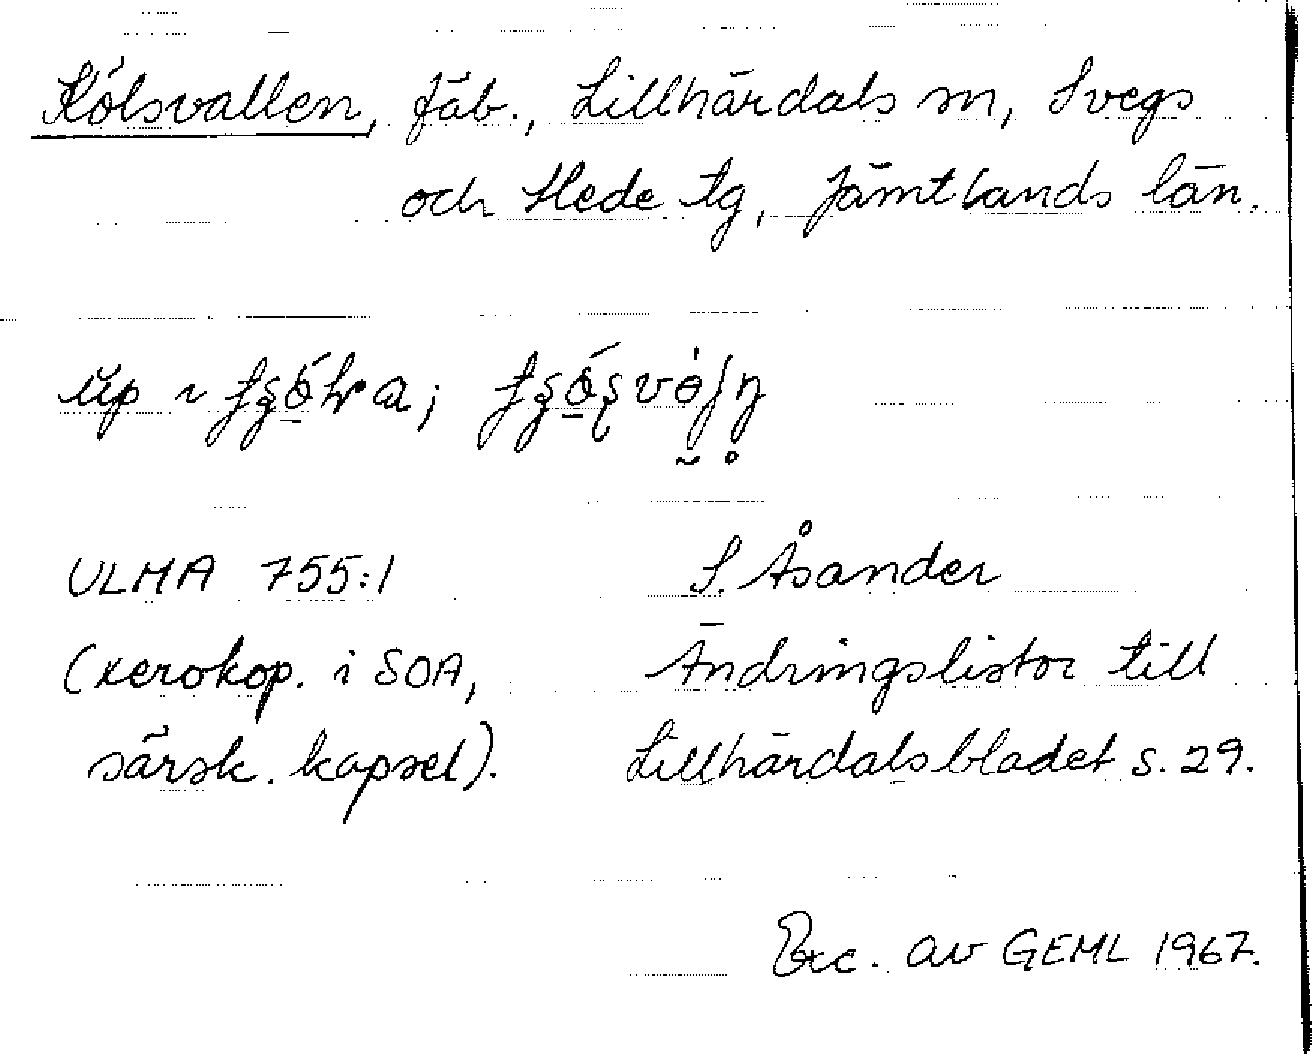 Kölsvallen, fäb., Lillhärdals sn, Svegs
och Hede tg, Jämtlands län.
ULMA 755:1
S. Åsander
(xerokop. i SOA,
Ändringslistor till
särsk. kapsel).
Lillhärdalsbladet s. 29.
Exc. av GEML 1967.